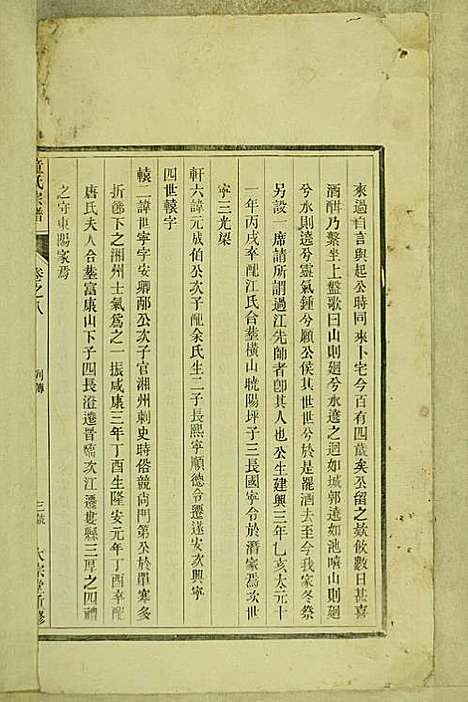 來過自言與起公時同來卜宅今百有四歲矣公留之歡飲數日甚喜
酒酣乃繫坐上盤歌曰山則廻兮水遶之迴如城郭遶如池嗔山則廻
兮水則遶兮靈氣鍾兮顧公侯其世世兮於是罷酒去至今我家冬祭
另設一席請所謂過江先師者卽其人也公生建興三年乙亥太元十
一年丙戌卒配江氏合塟橫山曉陽坪子三長國寧令於潛家焉次世
寧三光梁
軒六諱元成伯公次子配余氏生二子長熙寧順德令遷遂安次興寧
四世轅字
轅二諱世寧字安卿鄰公次子官湘州刺史時俗競尙門第公於單寒多
折節下之湘州士氣爲之一振咸康三年丁酉生隆安元年丁酉卒配
唐氏夫人合塟富康山下子四長澄遷晉臨次江遷婁縣三厚之四禮
之守東陽家焉
童氏宗譜 卷之八 列傳 三 大宗堂新修